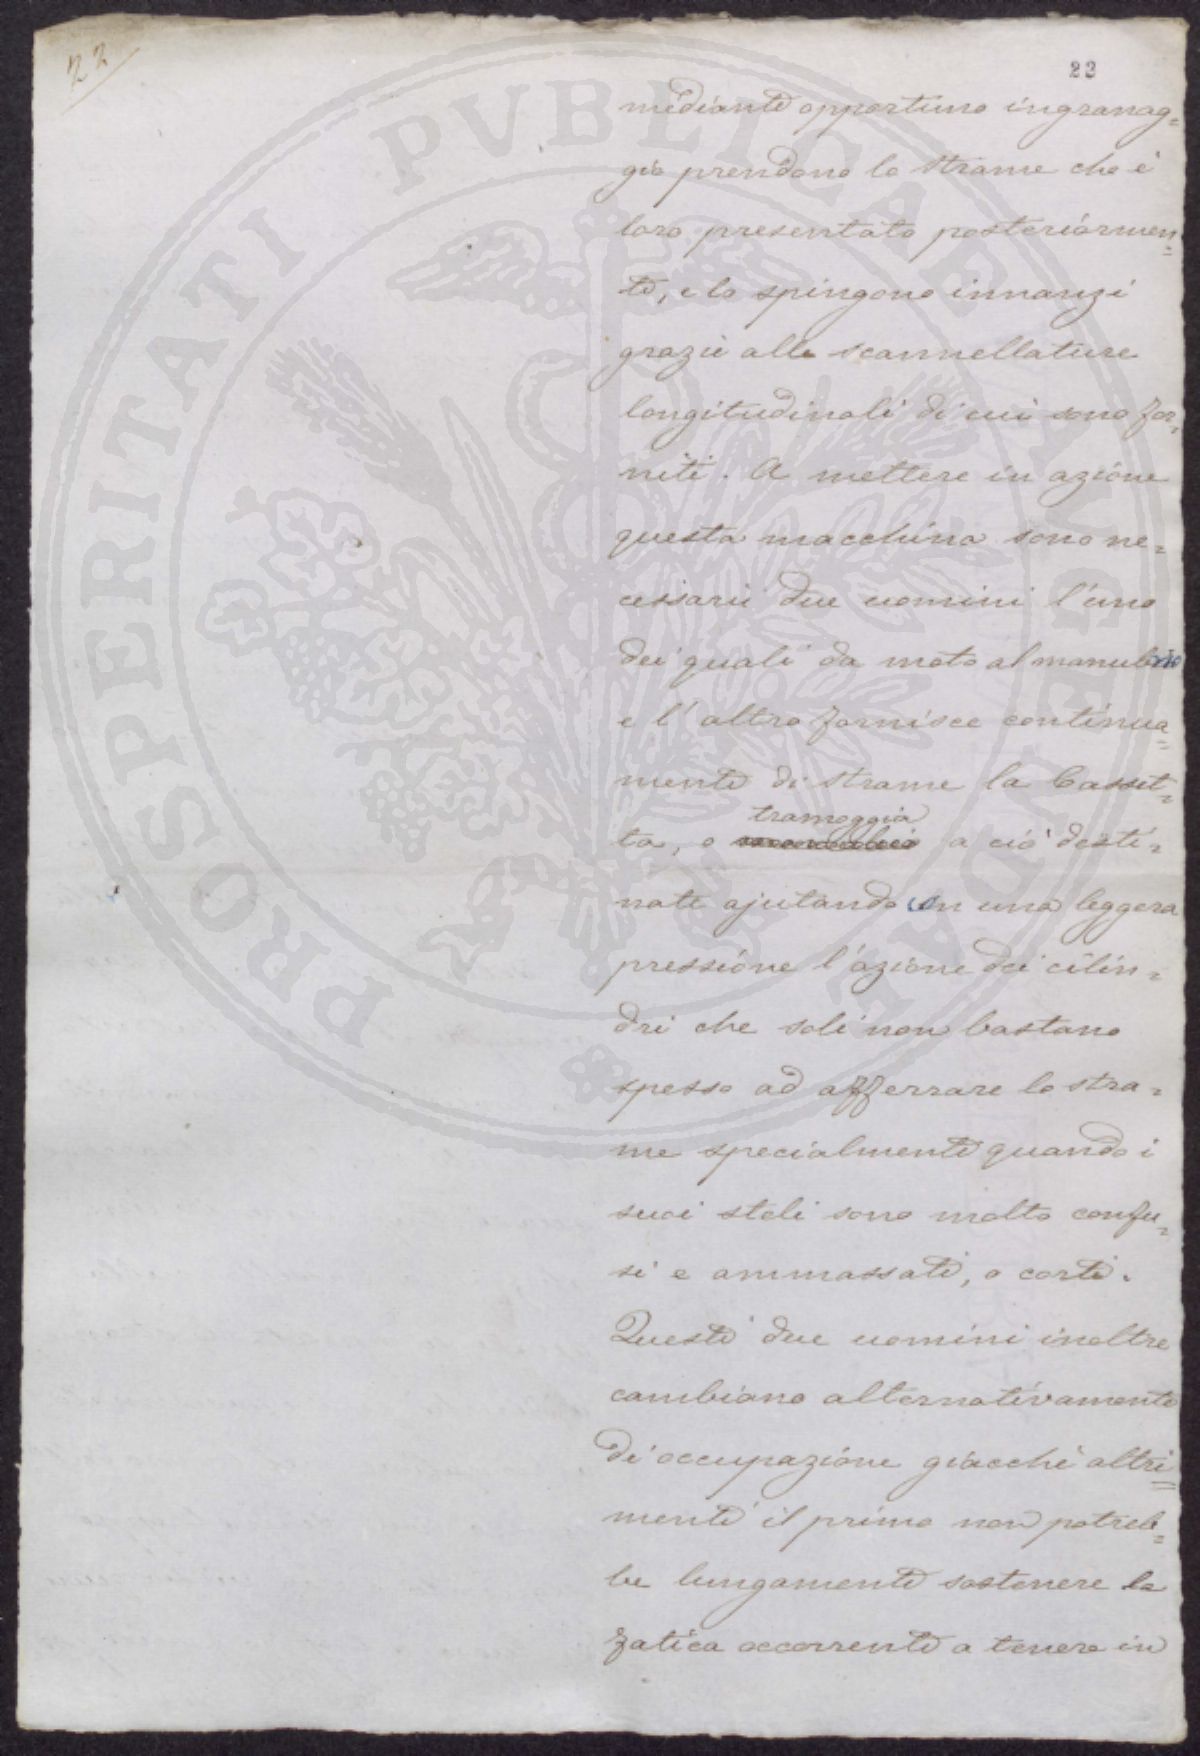 22
23
PROSPERITATI PVBLICAE AVGENDAE
mediante opportuno ingranag=
gio prendono lo strame che è
loro presentato posteriormen=
te, e lo spingono innanzi
grazie alle scannellature
longitudinali di cui sono for=
niti. A mettere in azione
questa macchina sono ne=
cessarii due uomini l'uno
dei quali da moto al manubrio
e l'altro fornisce continua=
mente di strame la Casset=
tramoggia
ta, o a ciò desti=
nate ajutando con una leggera
pressione l'azione dei cilin=
dri che soli non bastano
spesso ad afferrare lo stra=
me specialmente quando i
suoi steli sono molto confu=
si e ammassati, o corti.
Questi due uomini inoltre
cambiano alternativamente
di occupazione giacchè altri=
menti il primo non potreb=
be lungamente sostenere la
fatica occorrente a tenere in